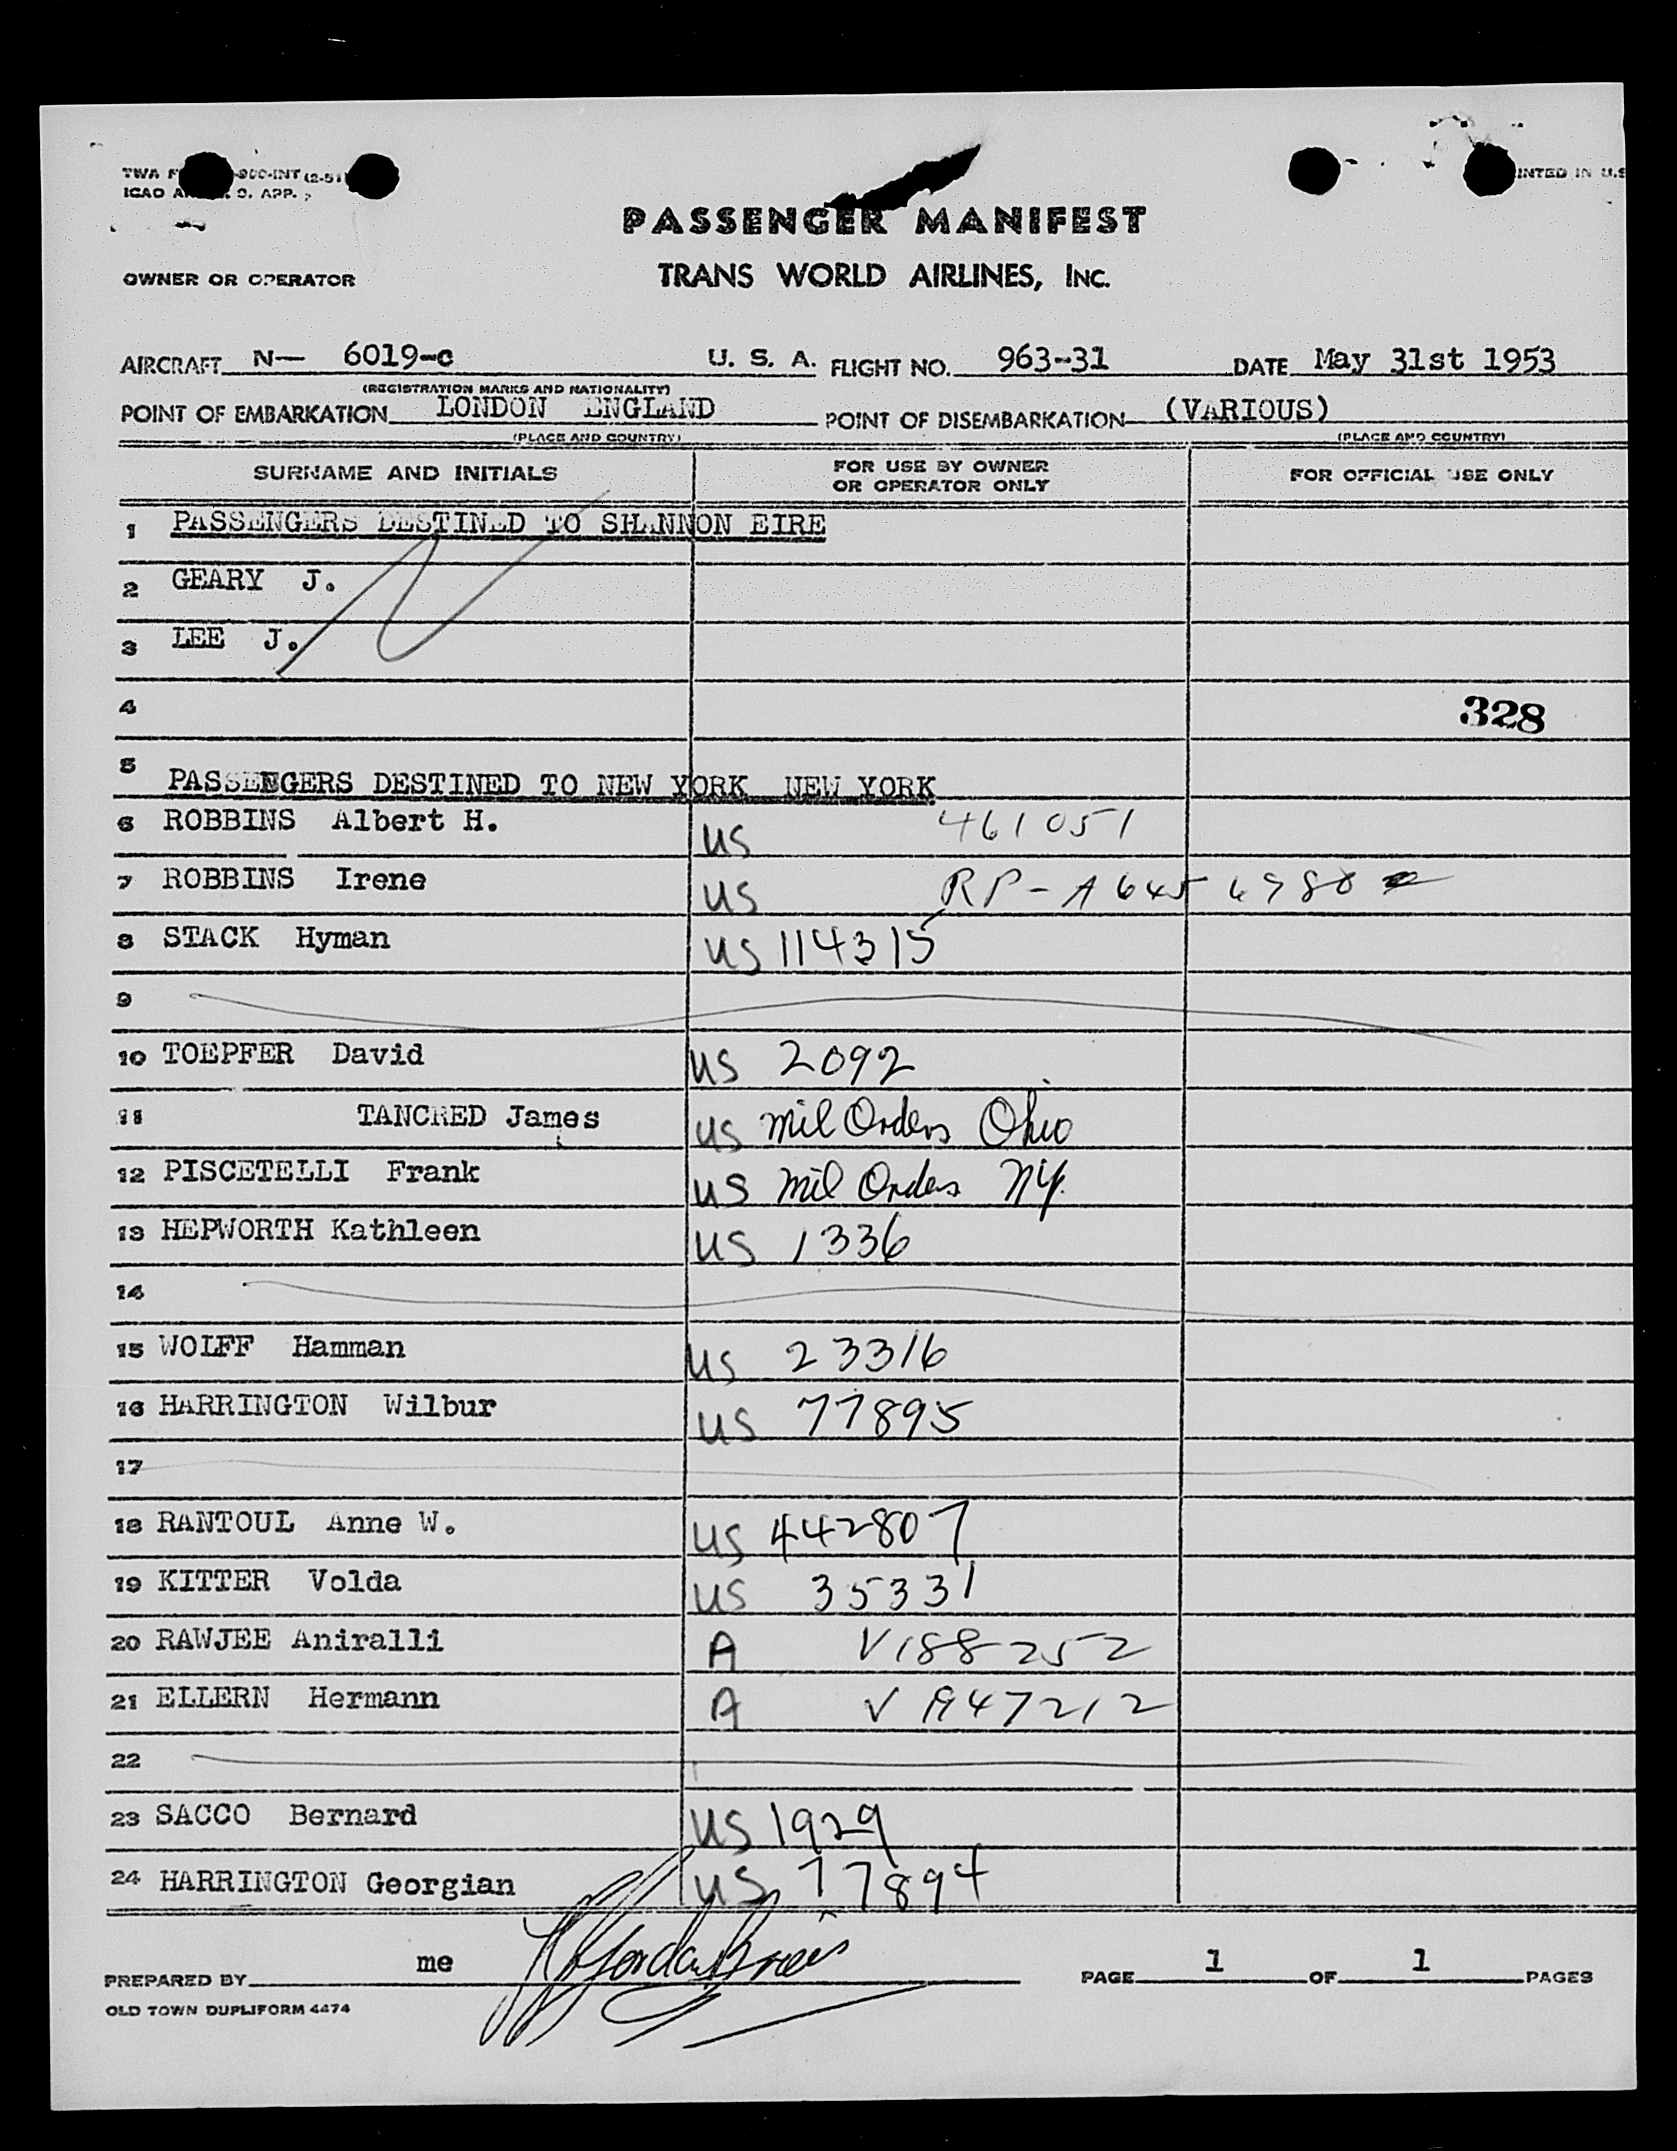 TWA F -900-INT (2-51)
PRINTED IN U.S
ICAO AN . O. APP.
PASSENGER MANIFEST
OWNER OR OPERATOR
TRANS WORLD AIRLINES, INC.
AIRCRAFT N— 6019-c U. S. A. FLIGHT NO. 963-31 DATE May 31st 1953
(REGISTRATION MARKS AND NATIONALITY)
POINT OF EMBARKATION LONDON ENGLAND POINT OF DISEMBARKATION (VARIOUS)
(PLACE AND COUNTRY) (PLACE AND COUNTRY)
SURNAME AND INITIALS FOR USE BY OWNER OR OPERATOR ONLY FOR OFFICIAL USE ONLY
1 PASSENGERS DESTINED TO SHANNON EIRE
2 GEARY J.
3 LEE J.
4 328
5 PASSENGERS DESTINED TO NEW YORK NEW YORK
6 ROBBINS Albert H. US 461051
7 ROBBINS Irene US RP-A645 6980
8 STACK Hyman US 114315
9
10 TOEPFER David US 2092
11 TANCRED James US mil Orders Ohio
12 PISCETELLI Frank US mil Orders NY.
13 HEPWORTH Kathleen US 1336
14
15 WOLFF Hamman US 23316
16 HARRINGTON Wilbur US 77895
17
18 RANTOUL Anne W. US 442807
19 KITTER Volda US 35331
20 RAWJEE Aniralli A V188252
21 ELLERN Hermann A V A947212
22
23 SACCO Bernard US 1929
24 HARRINGTON Georgian US 77894
PREPARED BY me PAGE 1 OF 1 PAGES
OLD TOWN DUPLIFORM 4474